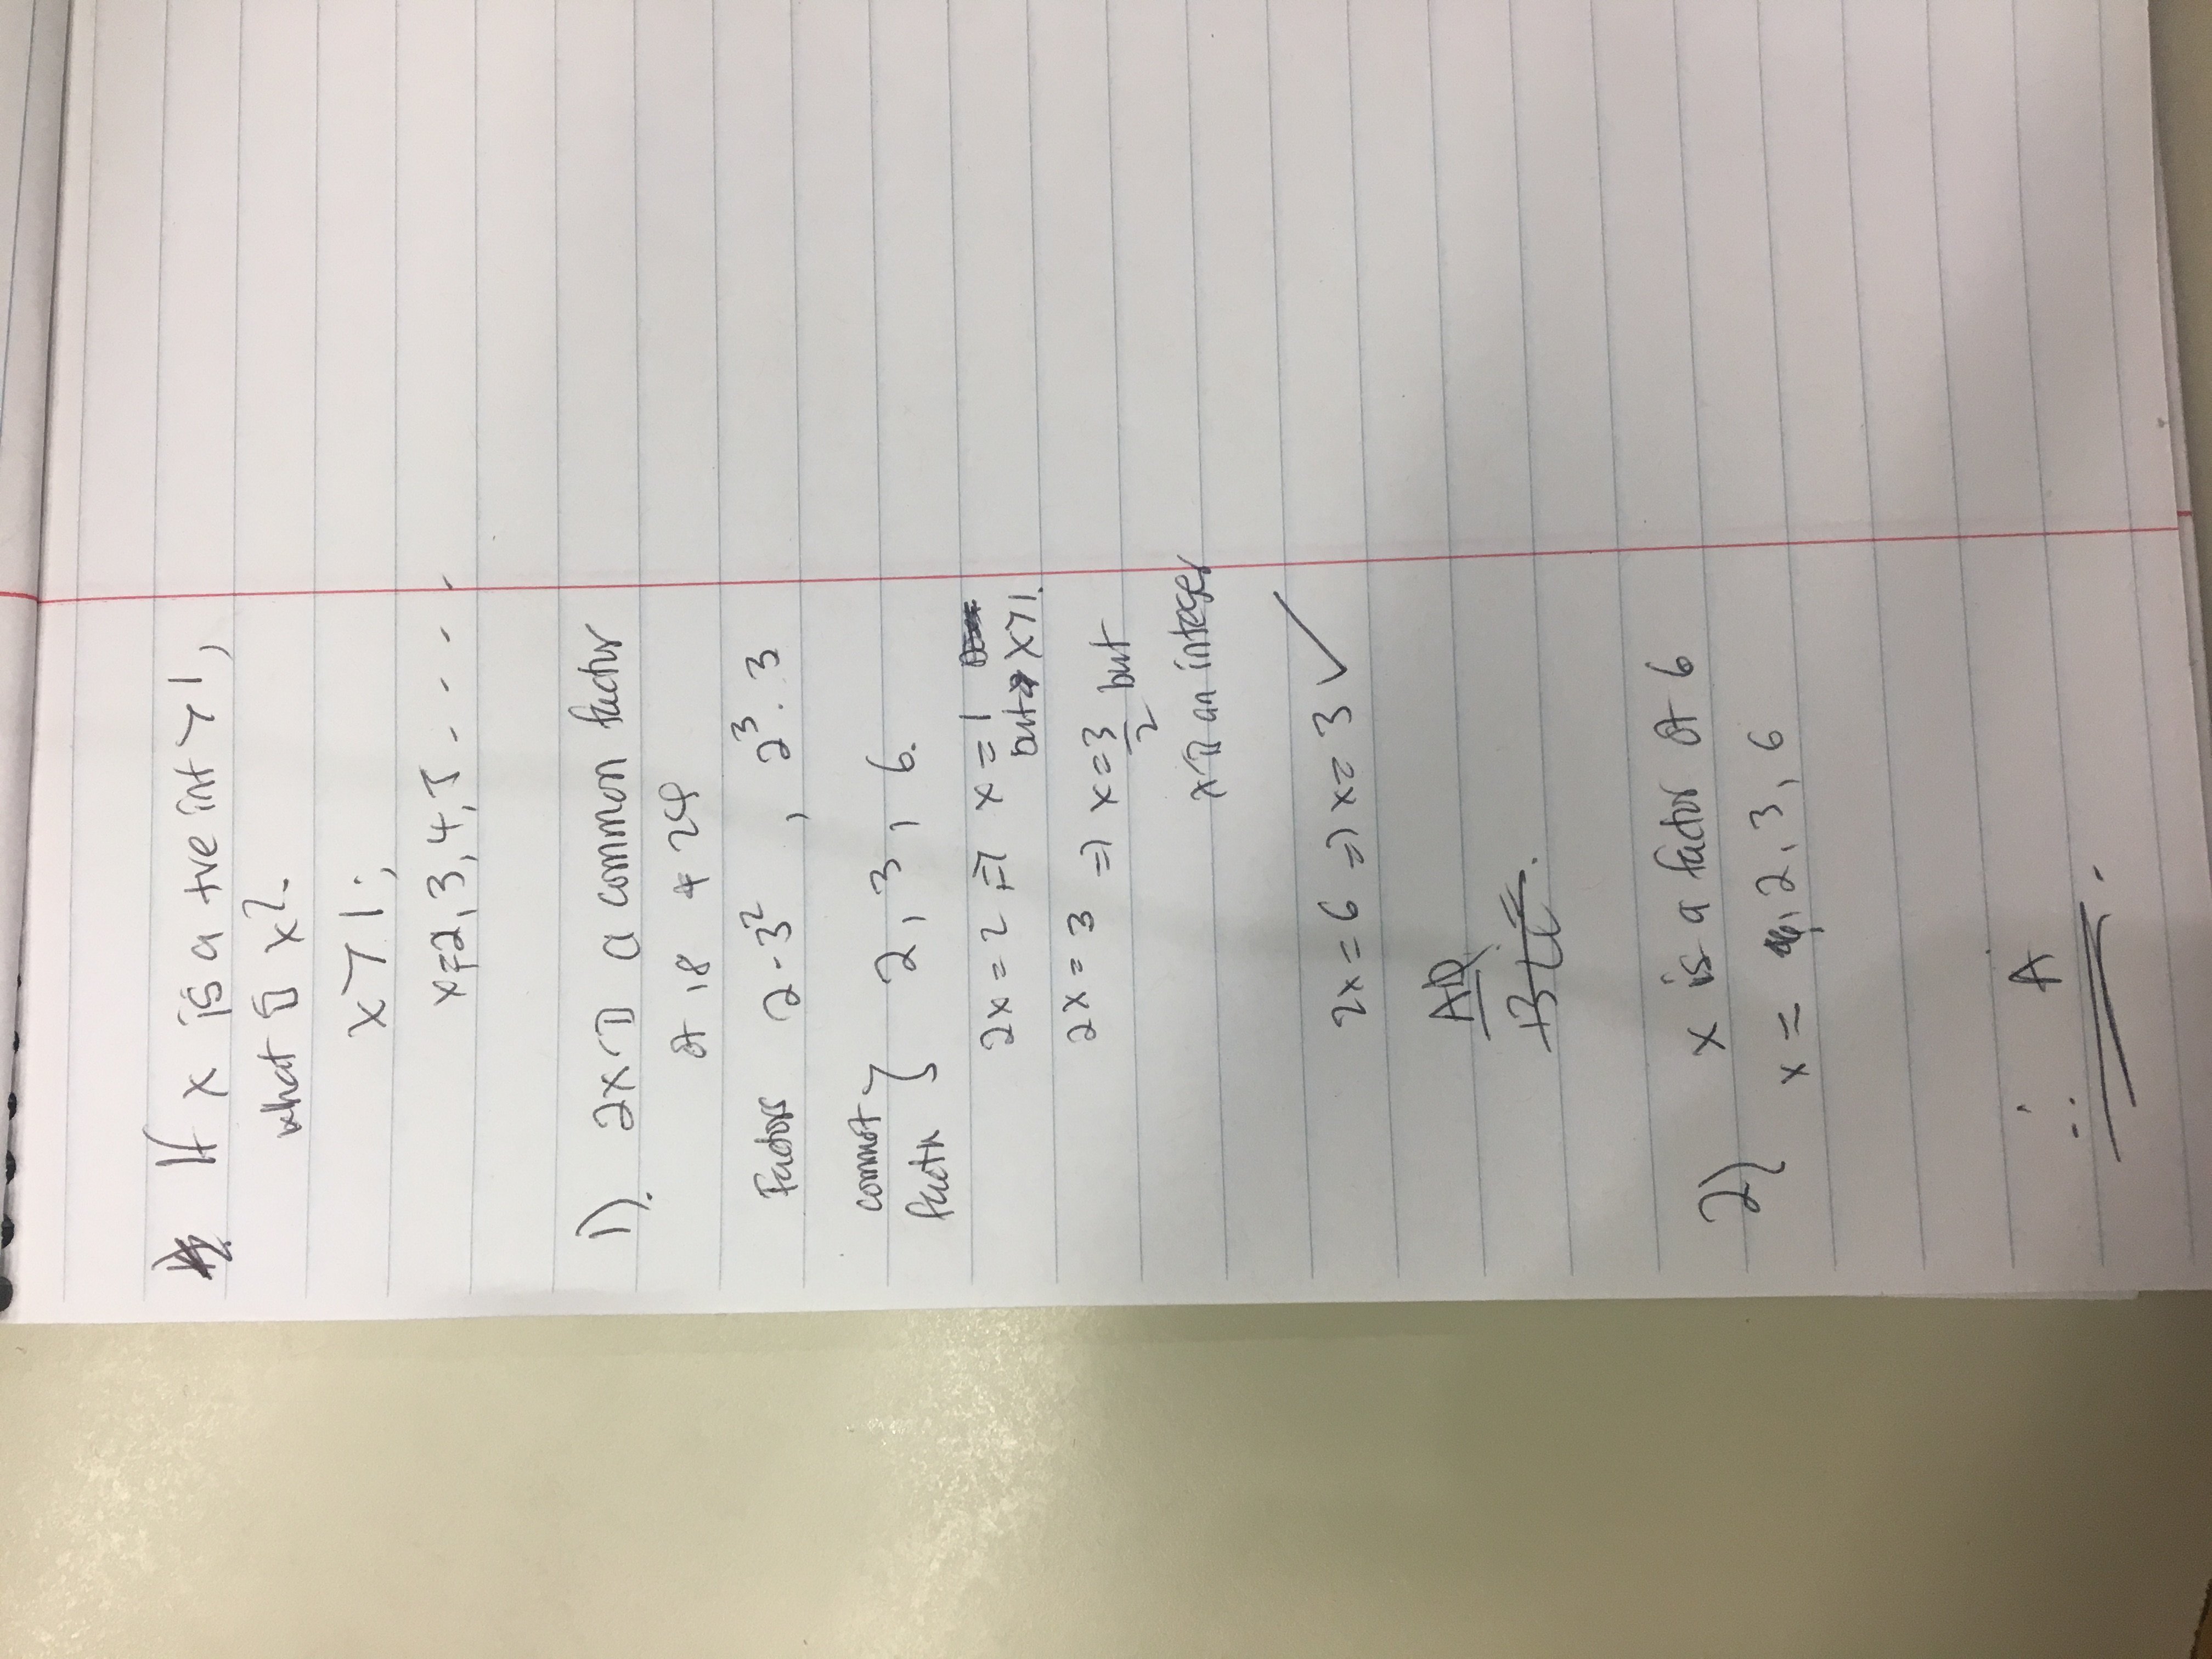 If x is a +ve int > 1,
what is x?
x > 1 ;
x = 2, 3, 4, 5 - - - -
1). 2x is a common factor
of 18 + 24
Factors 2 · 3², 2³ · 3
common } 2, 3, 6.
factor
2x = 2 => x = 1
but x > 1.
2x = 3 => x = 3/2 but
x is an integer
2x = 6 => x = 3 ✓
AD
BCE.
2) x is a factor of 6
x = 2, 3, 6
∴ A